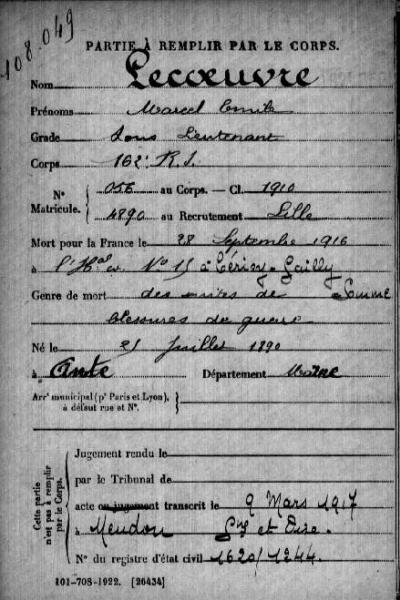 108.049
PARTIE À REMPLIR PAR LE CORPS.
Nom Lecoeuvre
Prénoms Marcel Emile
Grade Sous Lieutenant
Corps 162e R.I.
N° Matricule. 056 au Corps. — Cl. 1910
4890 au Recrutement Lille
Mort pour la France le 28 Septembre 1916
à l'Hal N° 15 à Cérisy-Gailly
Somme
Genre de mort des suites de
blessures de guerre
Né le 21 Juillet 1890
à Ante Département Marne
Arrt municipal (pr Paris et Lyon),
à défaut rue et N°.
Cette partie n'est pas à remplir par le Corps.
Jugement rendu le
par le Tribunal de
acte ou jugement transcrit le 9 Mars 1917
à Meudon Sne et Oise.
N° du registre d'état civil 1620/1244.
101-708-1922. [26434]